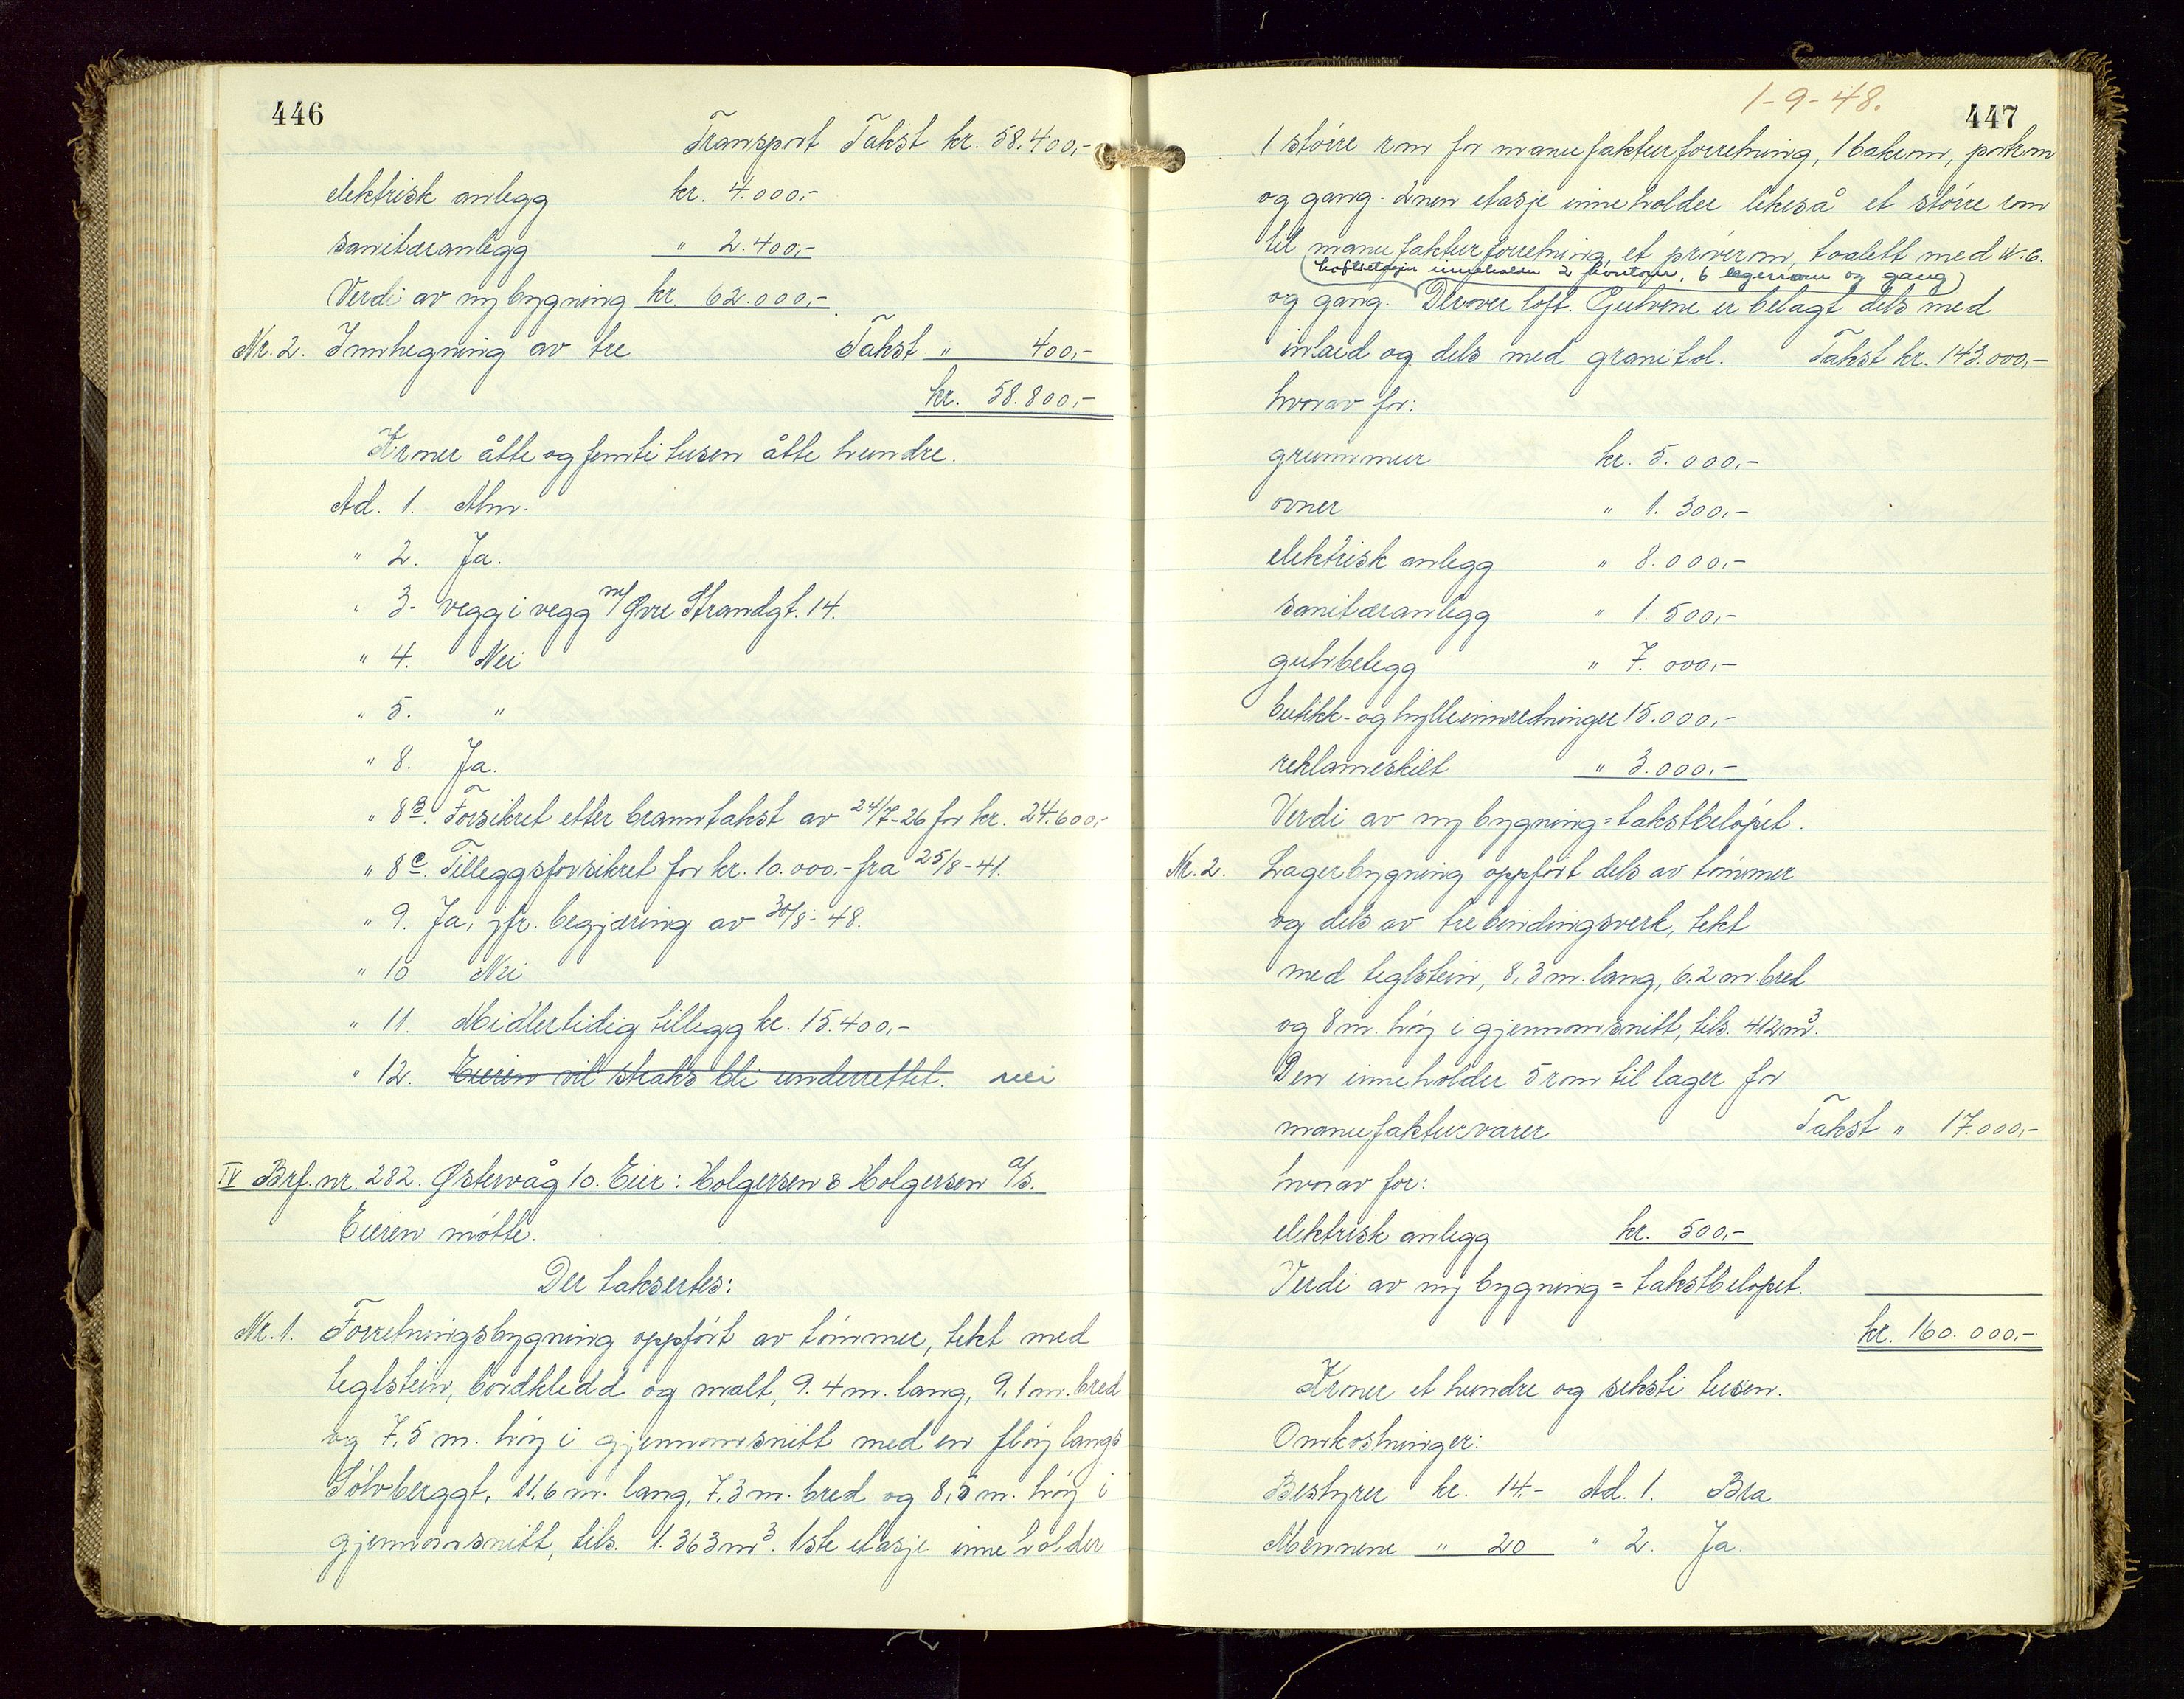 446
Transport Takst kr. 58.400,-
elektrisk anlegg kr. 4.000,-
sanitæranlegg " 2.400,-
Verdi av ny bygning kr. 62.000,-.
Nr. 2. Innhegning av tre Takst " 400,-
kr. 58.800,-
Kroner åtte og femti tusen åtte hundre.
Ad. 1. Alm.
" 2. Ja.
" 3. vegg i vegg m/ Øvre Strandgt. 14.
" 4. Nei
" 5. "
" 8. Ja.
" 8B. Forsikret etter branntakst av 24/7-26 for kr. 24.600,-
" 8C. Tilleggsforsikret for kr. 10.000,- fra 25/8-41.
" 9. Ja, jfr. begjæring av 30/8-48.
" 10 Nei
" 11. Midlertidig tillegg kr. 15.400,-
" 12. Eieren vil straks bli underrettet. nei
IV Brf. nr. 282. Østervåg 10. Eier: Holgersen & Holgersen a/s.
Eieren møtte.
Der taksertes:
Nr. 1. Forretningsbygning oppført av tømmer, tekt med
teglstein, bordkledd og malt, 9.4 m. lang, 9,1 m. bred
og 7,5 m. høy i gjennomsnitt med en fløy langs
Sølvberggt. 11,6 m. lang, 7,3 m. bred og 8,5 m. høy i
gjennomsnitt, tils. 1.363 m³. 1ste etasje inneholder
1-9-48.
447
1 større rom for manufakturforretning, 1 bakrom, pakrom
og gang. 2nen etasje inneholder likeså et større rom
til manufakturforretning, et prøverom, toalett med W.C.
Loftsetasjen inneholder 2 kontorer, 6 lagerrom og gang
og gang. Derover loft. Gulvene er belagt dels med
inlaid og dels med granitol. Takst kr. 143.000,-
hvorav for:
grunnmur kr. 5.000,-
ovner " 1.300,-
elektrisk anlegg " 8.000,-
sanitæranlegg " 1.500,-
gulvbelegg " 7.000,-
butikk- og hylleinnredninger 15.000,-
reklameskilt " 3.000,-
Verdi av ny bygning = takstbeløpet.
Nr. 2. Lagerbygning oppført dels av tømmer
og dels av tre bindingsverk, tekt
med teglstein, 8,3 m. lang, 6.2 m. bred
og 8 m. høy i gjennomsnitt, tils. 412 m³.
Den inneholder 5 rom til lager for
manufakturvarer Takst " 17.000,-
hvorav for:
elektrisk anlegg kr. 500,-
Verdi av ny bygning = takstbeløpet.
kr. 160.000,-
Kroner et hundre og seksti tusen.
Omkostninger:
Bestyrer kr. 14.- Ad. 1. Bra
Mennene " 20 " 2. Ja.